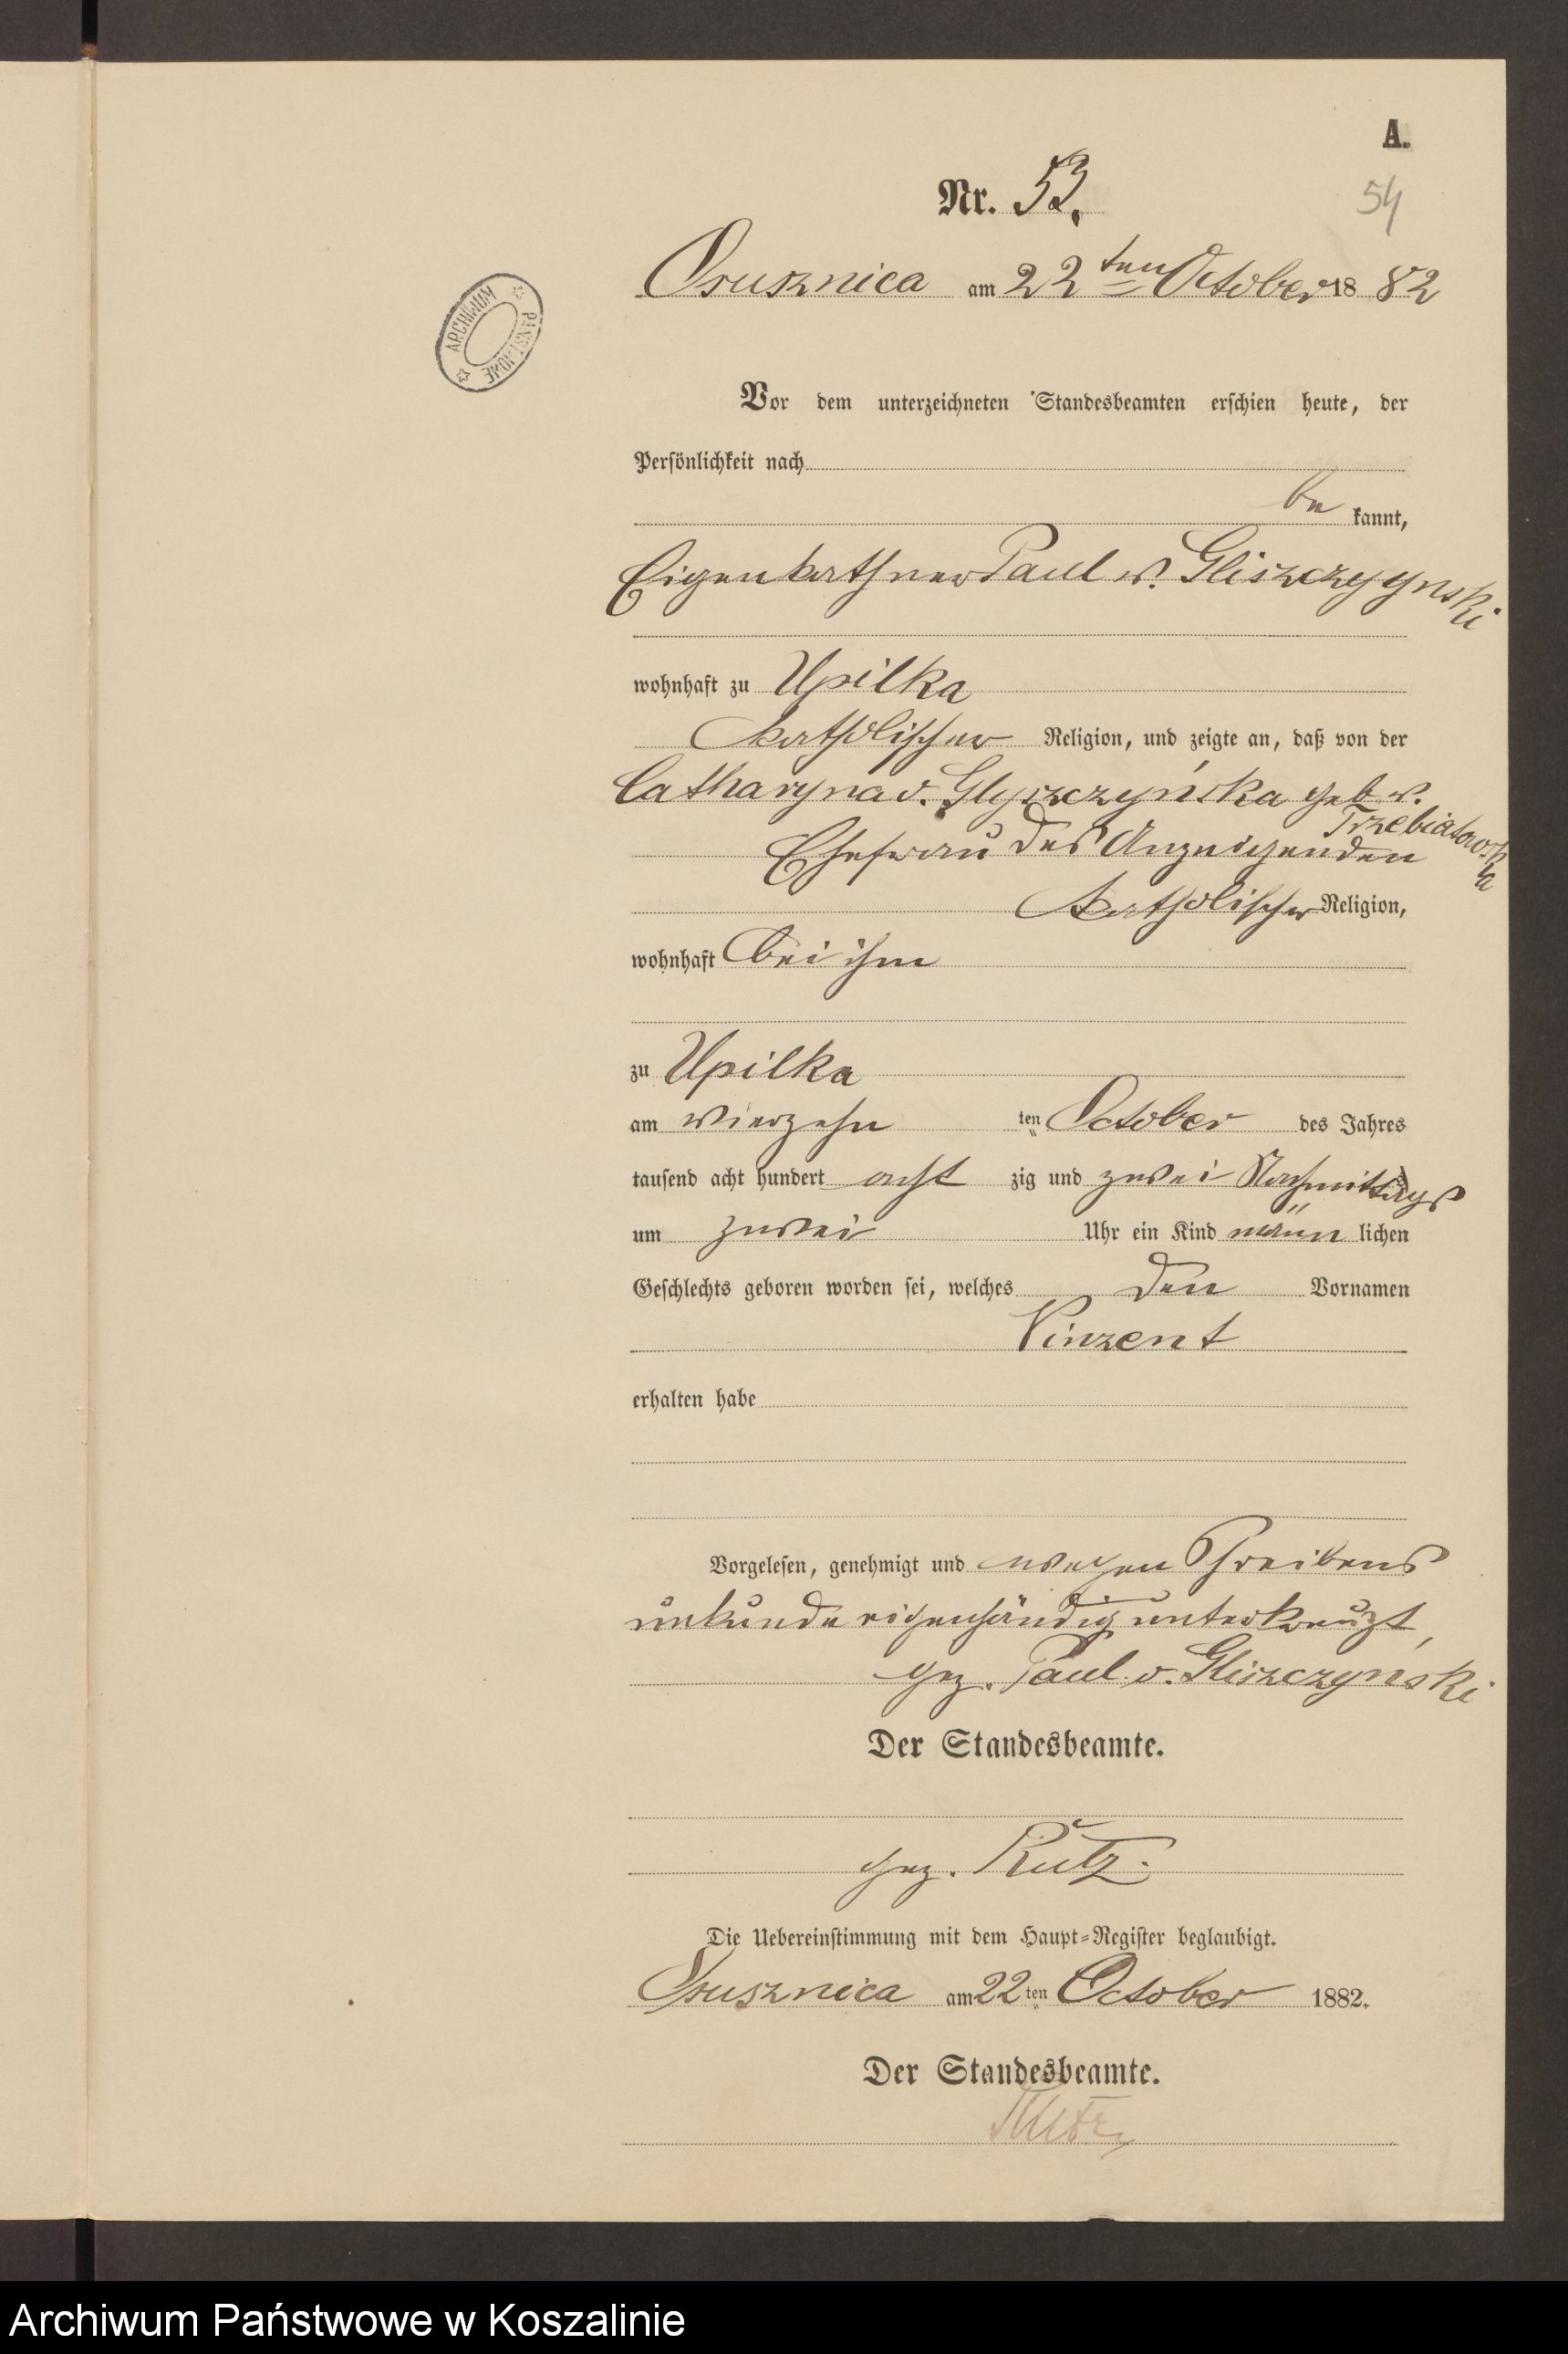 A.
Nr. 53.
54
Osusznica am 22ten October 1882
ARCHIWUM PAŃSTWOWE
Vor dem unterzeichneten Standesbeamten erschien heute, der
Persönlichkeit nach
be kannt,
Eigenkathner Paul v. Gliszczyynski
wohnhaft zu Upilka
katholischer Religion, und zeigte an, daß von der
Catharyna v. Glyszczyńska geb. v.
Trzebiatowska
Ehefrau des Anzeigenden
katholischer Religion,
wohnhaft bei ihm
zu Upilka
am vierzehn ten October des Jahres
tausend acht hundert acht zig und zwei Nachmittags
um zwei Uhr ein Kind männ lichen
Geschlechts geboren worden sei, welches den Vornamen
Vinzent
erhalten habe
Vorgelesen, genehmigt und wegen Schreibens
unkunde eigenhändig unterkreuzt,
gez. Paul v. Gliszczyński
Der Standesbeamte.
gez. Rutz.
Die Uebereinstimmung mit dem Haupt-Register beglaubigt.
Osusznica am 22ten October 1882.
Der Standesbeamte.
Rutz
Archiwum Państwowe w Koszalinie